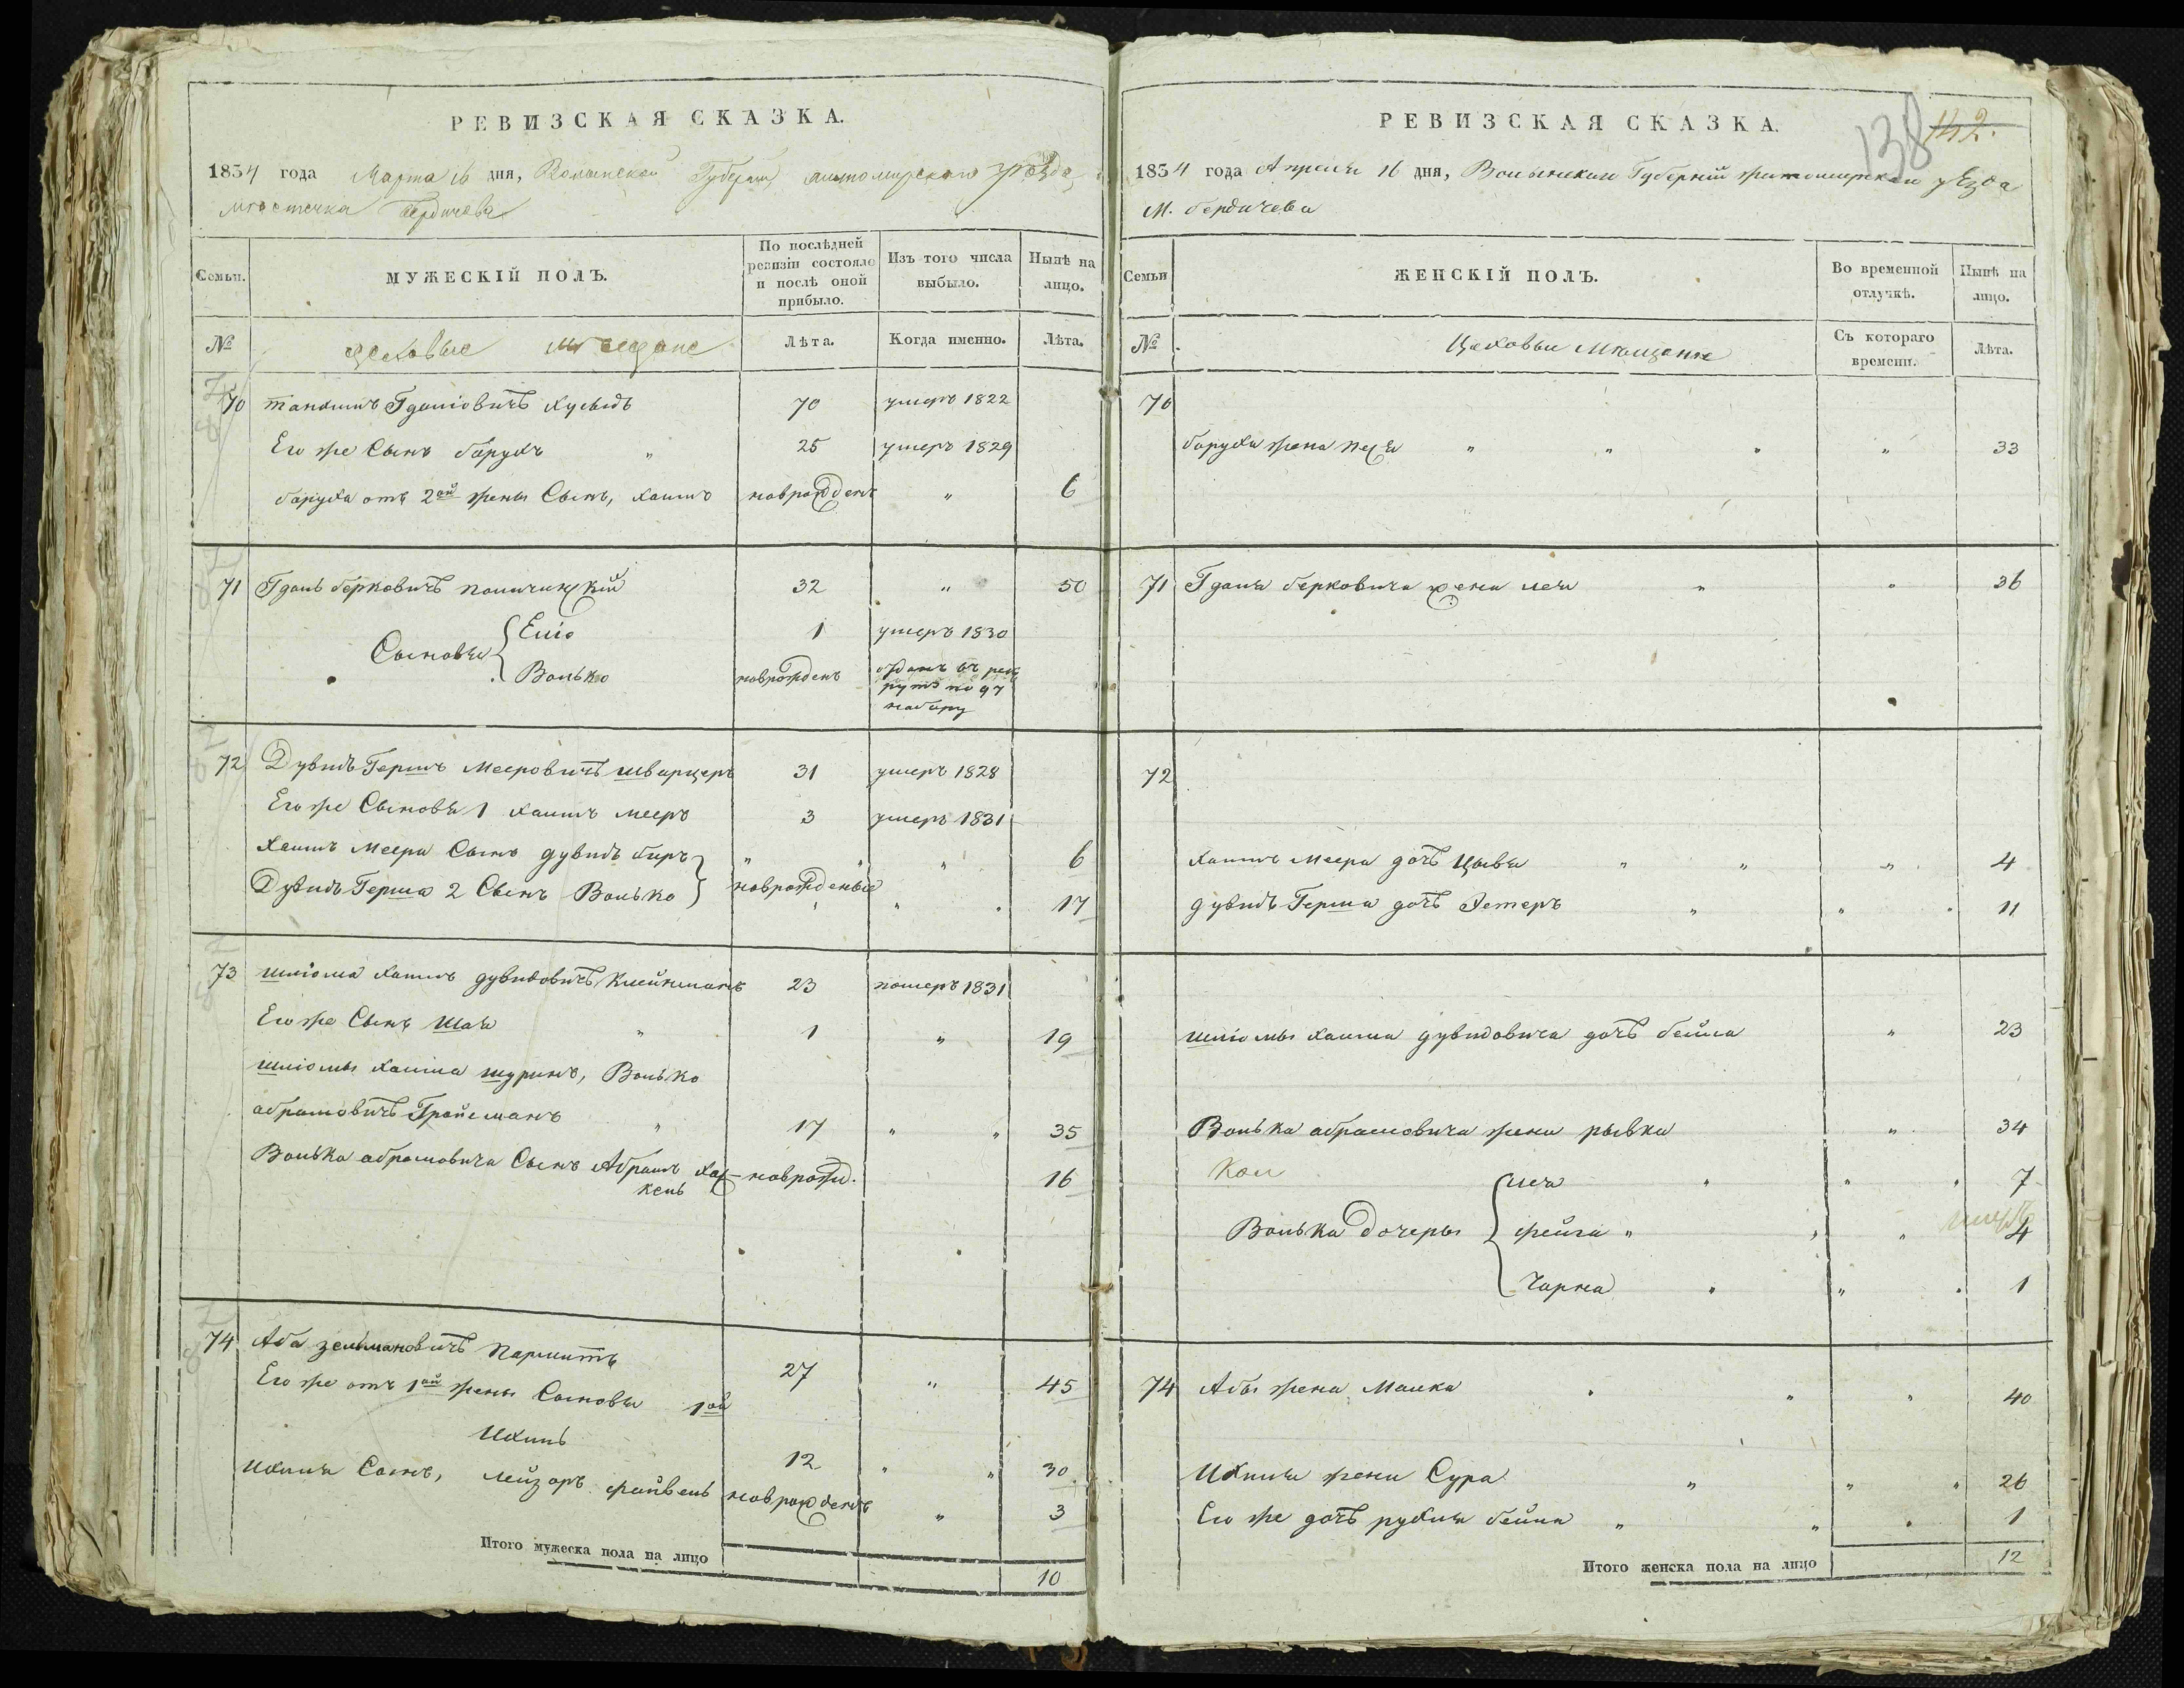 РЕВИЗСКАЯ СКАЗКА.
1834 года Марта 16 дня, Волынской Губерніи житомирскаго уѣзда,
мѣстечка Бердичева
Семьи.
МУЖЕСКІЙ ПОЛЪ.
По послѣдней ревизіи состояло и послѣ оной прибыло.
Изъ того числа выбыло.
Нынѣ на лицо.
№
цеховые мѣщане
Лѣта.
Когда именно.
Лѣта.
70 Гданіовичъ 70 умеръ 1822
Его же Сынъ барухъ " 25 умеръ 1829
баруха отъ 2ой жены Сынъ, хаимъ новрожденъ " 6
71 Гдаль берковичъ 32 " 50
Сыновья Еліо 1 умеръ 1830
Волько новрожденъ отданъ въ рекруты по 97 набору
72 Дувидъ Гершъ Мееровичъ шварцеръ 31 умеръ 1828
Его же Сыновья 1 хаимъ мееръ 3 умеръ 1831
хаимъ меера Сынъ дувидъ беръ " " " 6
Дувидъ Герша 2 Сынъ Волько новрожденые " " 17
73 шліома хаимъ дувидовичъ клейнманъ 23 померъ 1831
Его же Сынъ шая " 1 " 19
шліомы хаима шуринъ, Волько
абрамовичъ Гройсманъ " 17 " " 35
Волька абрамовича Сынъ Абрамъ хаскель новрожд. 16
74 Аба зельмановичъ Пармитъ 27 " 45
Его же отъ 1ой жены Сыновья 1ой
Ихиль 12 " " 30
Ихиля Сынъ, лейзоръ файвель новрожденъ " 3
Итого мужеска пола на лицо 10
138
142.
РЕВИЗСКАЯ СКАЗКА.
1834 года Апреля 16 дня, Волынской Губерніи житомирскаго уѣзда
М. бердичева
Семьи
ЖЕНСКІЙ ПОЛЪ.
Во временной отлучкѣ.
Нынѣ на лицо.
№
Цеховыи Мѣщанне
Съ котораго времени.
Лѣта.
70
баруха жена песя " " " " 33
71 Гдаля берковича жена лея " " 36
72
хаимъ меера дочь цывья " " " 4
дувидъ Герша дочь Эстеръ " " " 11
шліомы хаима дувидовича дочь бейла " 23
Волька абрамовича жена рывка " 34
лея " " " 7
Волька дочеры фейга " " " 4
Чарна " " " 1
74 Абы жена Малка " " " 40
Ихиля жена Сура " " " 26
Его же дочь рухля бейла " " " 1
Итого женска пола на лицо 12